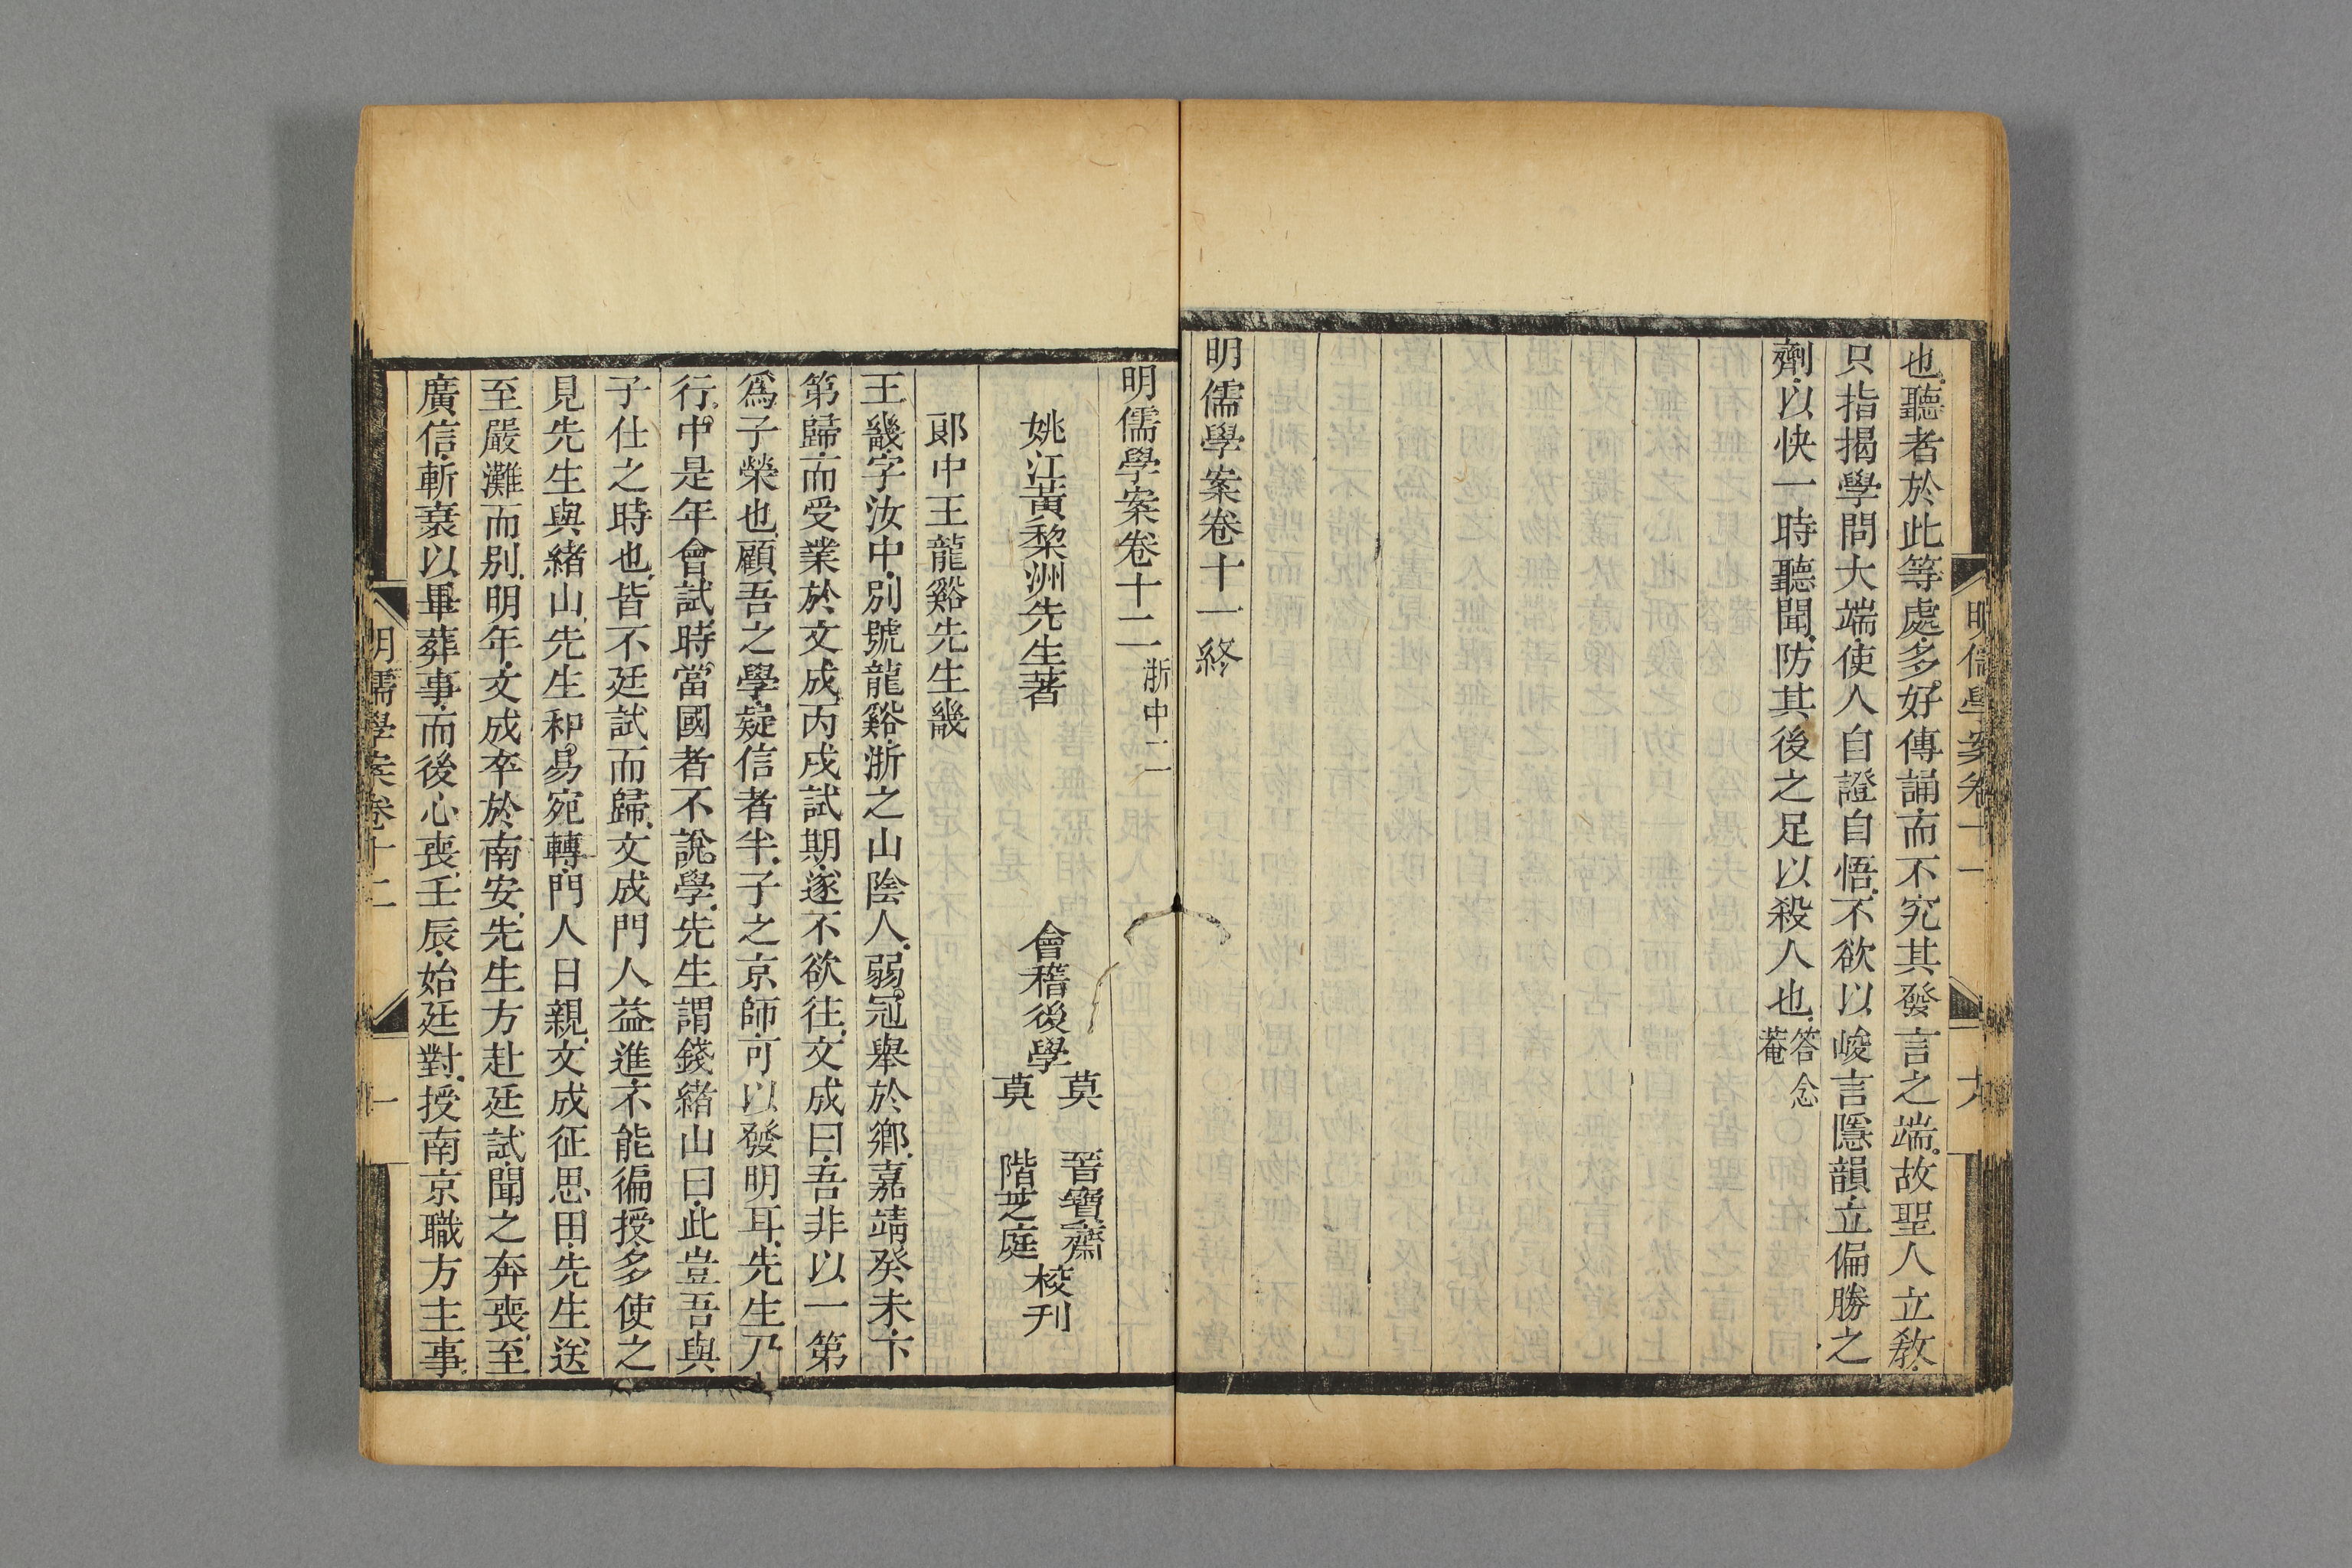 明儒學案卷十一
也聽者於此等處多好傳誦而不究其發言之端故聖人立敎
只指揭學問大端使人自證自悟不欲以峻言隱韻立偏勝之
劑以快一時聽聞防其後之足以殺人也答念
菴
明儒學案卷十一終
明儒學案卷十二 浙中二
姚江黃棃洲先生著
會稽後學
莫 晉寶齋
莫 階芝庭
校刊
郞中王龍谿先生畿
王畿字汝中別號龍谿浙之山陰人弱冠舉於鄕嘉靖癸未下
第歸而受業於文成丙戌試期遂不欲往文成曰吾非以一第
爲子榮也顧吾之學疑信者半子之京師可以發明耳先生乃
行中是年會試時當國者不說學先生謂錢緒山曰此豈吾與
子仕之時也皆不廷試而歸文成門人益進不能徧授多使之
見先生與緒山先生和易宛轉門人日親文成征思田先生送
至嚴灘而別明年文成卒於南安先生方赴廷試聞之奔喪至
廣信斬衰以畢葬事而後心喪壬辰始廷對授南京職方主事
明儒學案卷十二 一